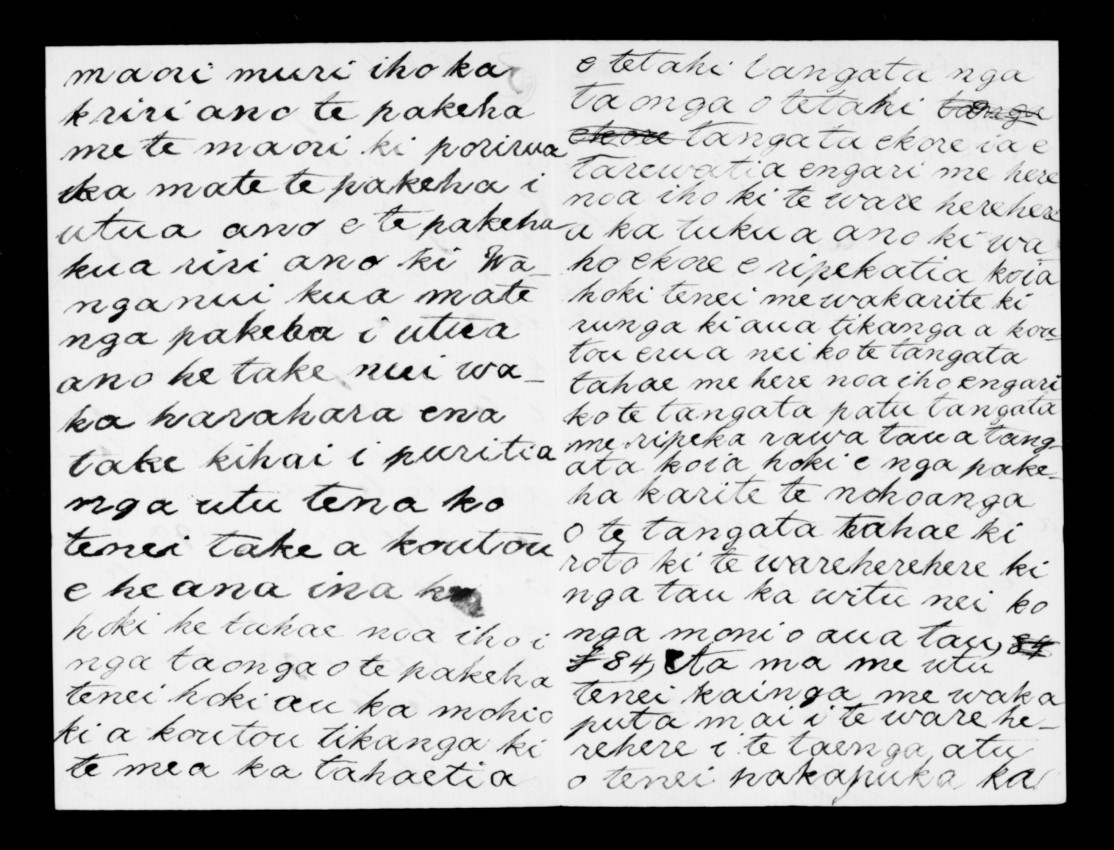 maori muri iho ka
kriri ano te pakeha
me te maori ki porirua
ka mate te pakeha i
utua ano e te pakeha
kua riri ano ki Wa-
nganui kua mate
nga pakeha i utua
ano he take nui wa-
ka harahara ena
take kihai i puritia
nga utu tena ko
tenei take a koutou
e he ana ina
hoki he tahae noa iho i
nga taonga o te pakeha
tenei hoki au ka mohio
ki a koutou tikanga ki
te mea ka tahaetia
e tetahi tangata nga
taonga o tetahi tangu
ekore tangata ekore ia e
tarewatia engari me here
noa iho ki te ware herehere
a ka tukua ano ki wa
ho ekore e ripekatia koia
hoki tenei me wakarite ki
runga ki aua tikanga a kou-
tou erua nei ko te tangata
tahae me here noa iho engari
ko te tangata patu tangata
me ripeka rawa taua tang-
ata koia hoki e nga pake-
ha karite te nohoanga
o te tangata tahae ki
roto ki te ware herehere ki
nga tau ka witu nei ko
nga moni o aua tau, 84
£84, Eta ma me utu
tenei kainga me waka
puta mai i te ware he-
rehere i te taenga atu
o tenei pakapuka ka